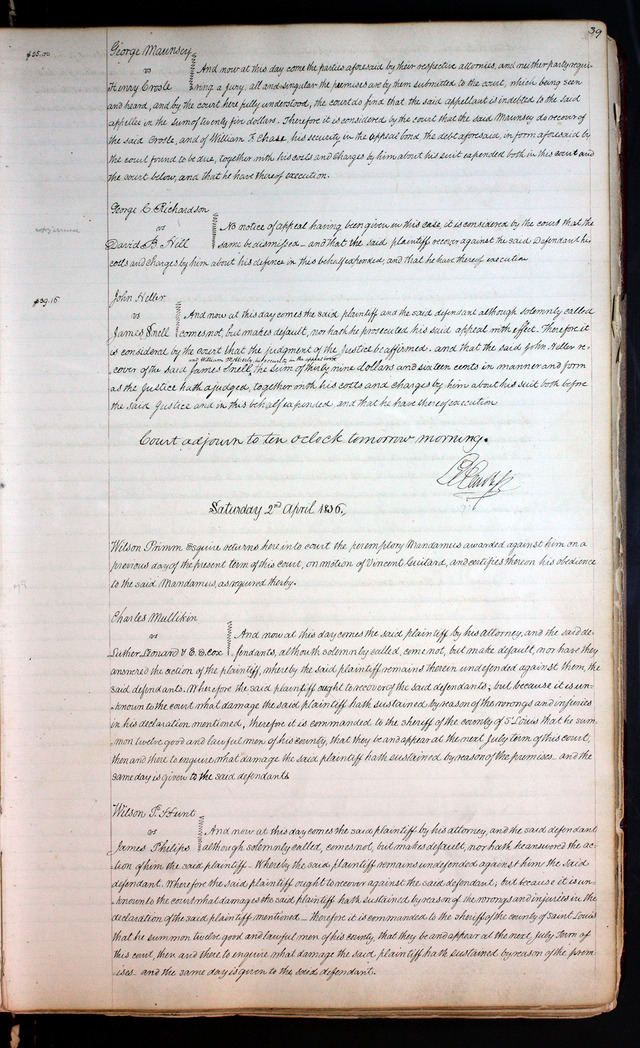 39
George Maunsey
$25.00
vs And now at this day come the parties aforesaid by their respective attornies, and neither party requi-
Henry Crosle ring a jury, all and singular the premises are by them submitted to the court, which being seen
and heard, and by the court here fully understood, the court do find that the said appellant is indebted to the said
appellee in the sum of twenty five dollars. Therefore it is considered by the court that the said Maunsey do recover of
the said Crosle, and of William F. Chase, his security in the appeal bond the debt aforesaid, in form aforesaid by
the court found to be due, together with his costs and charges by him about his suit expended both in this court and
the court below, and that he have thereof execution.
George C. Richardson
vs No notice of appeal having been given in this case, it is considered by the court that the
David B. Hill same be dismissed - and that the said plaintiff recover against the said Defendant his
costs and charges by him about his defence in this behalf expended, and that he have thereof execution
John Heller
$39.16
vs And now at this day comes the said plaintiff and the said defendant although solemnly called
James Snell comes not, but makes default, nor hath he prosecuted his said appeal with effect. Therefore it
is considered by the court that the judgment of the Justice be affirmed. and that the said John Heller re-
and William his security in the appeal bond
cover of the said James Snell, the sum of thirty nine dollars and sixteen cents in manner and form
as the Justice hath adjudged, together with his costs and charges by him about his suit both before
the said Justice and in this behalf expended, and that he have thereof execution
Court adjourn to ten oclock tomorrow morning.
Saturday 2nd April 1836.
Wilson Primm Esquire returns here into court the peremptory Mandamus awarded against him on a
previous day of the present term of this court, on motion of Vincent Guitard, and certifies thereon his obedience
to the said Mandamus, as required thereby.
Charles Mullikin
vs And now at this day comes the said plaintiff by his attorney, and the said de-
Luther Leonard & E. D. Cox fendants, although solemnly called, come not, but make default, nor have they
answered the action of the plaintiff, whereby the said plaintiff remains therein undefended against them, the
said defendants. Wherefore the said plaintiff ought to recover of the said defendants, but because it is un-
known to the court what damage the said plaintiff hath sustained by reason of the wrongs and injuries
in his declaration mentioned, Therefore it is commanded to the sheriff of the county of St Louis that he sum-
mon twelve good and lawful men of his county, that they be and appear at the next July term of this court,
then and there to enquire what damage the said plaintiff hath sustained by reason of the premises. and the
same day is given to the said defendants
Wilson P. Hunt
vs And now at this day comes the said plaintiff by his attorney, and the said defendant
James Phelips although solemnly called, comes not, but makes default, nor hath he answered the ac-
tion of him the said plaintiff - Whereby the said plaintiff remains undefended against him the said
defendant. Wherefore the said plaintiff ought to recover against the said defendant, but because it is un-
known to the court what damages the said plaintiff hath sustained by reason of the wrongs and injuries in the
declaration of the said plaintiff mentioned - therefore it is commanded to the sheriff of the county of Saint Louis
that he summon twelve good and lawful men of his county, that they be and appear at the next July Term of
this court, then and there to enquire what damage the said plaintiff hath sustained by reason of the prem-
ises. and the same day is given to the said defendant.